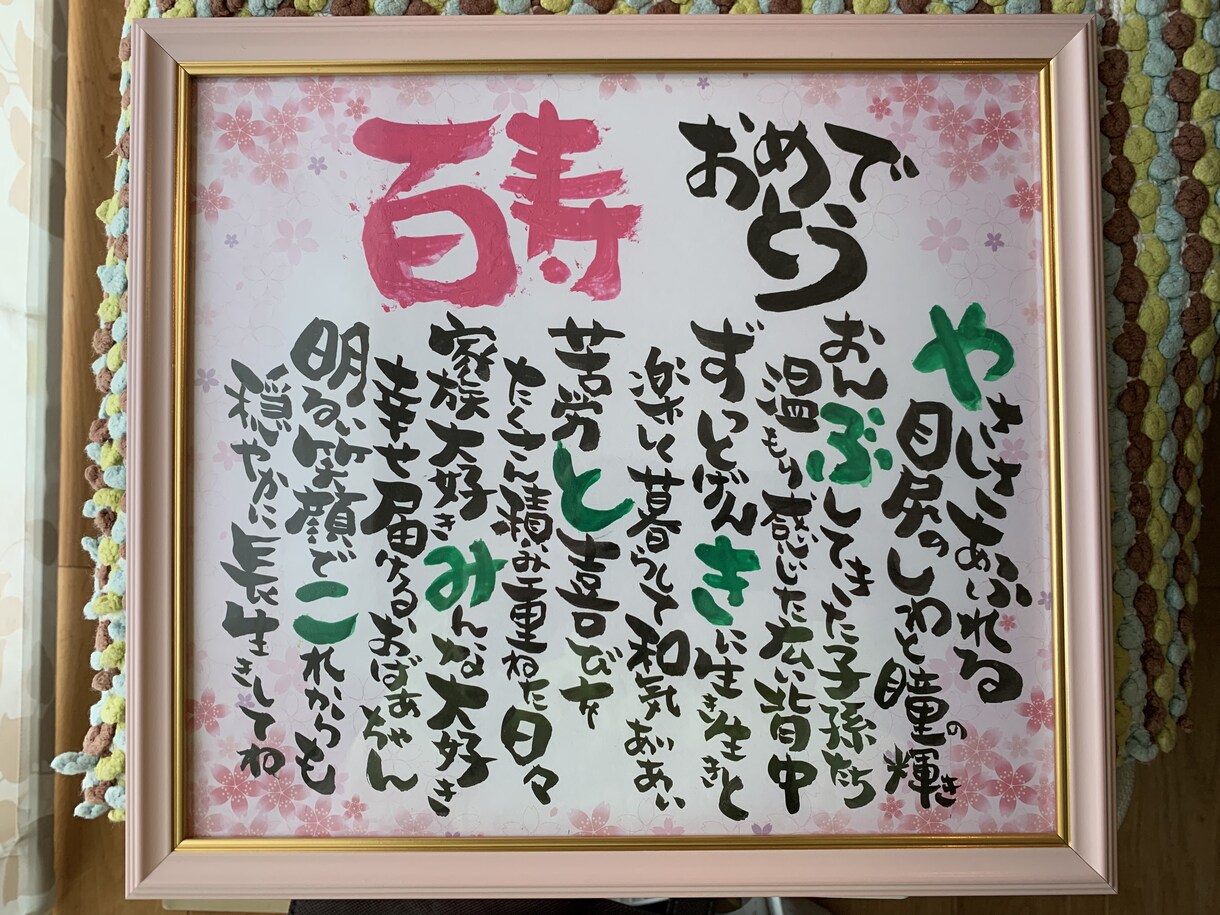 おめで
とう
百寿
やさしさあふれる
目尻のしわと瞳の輝き
おんぶしてきた子孫たち
温もり感じた広い背中
ずっとげんきに生き生きと
楽しく暮らして和気あいあい
苦労と喜びを
たくさん積み重ねた日々
家族大好きみんな大好き
幸せ届けるおばあちゃん
明るい笑顔でこれからも
穏やかに長生きしてね